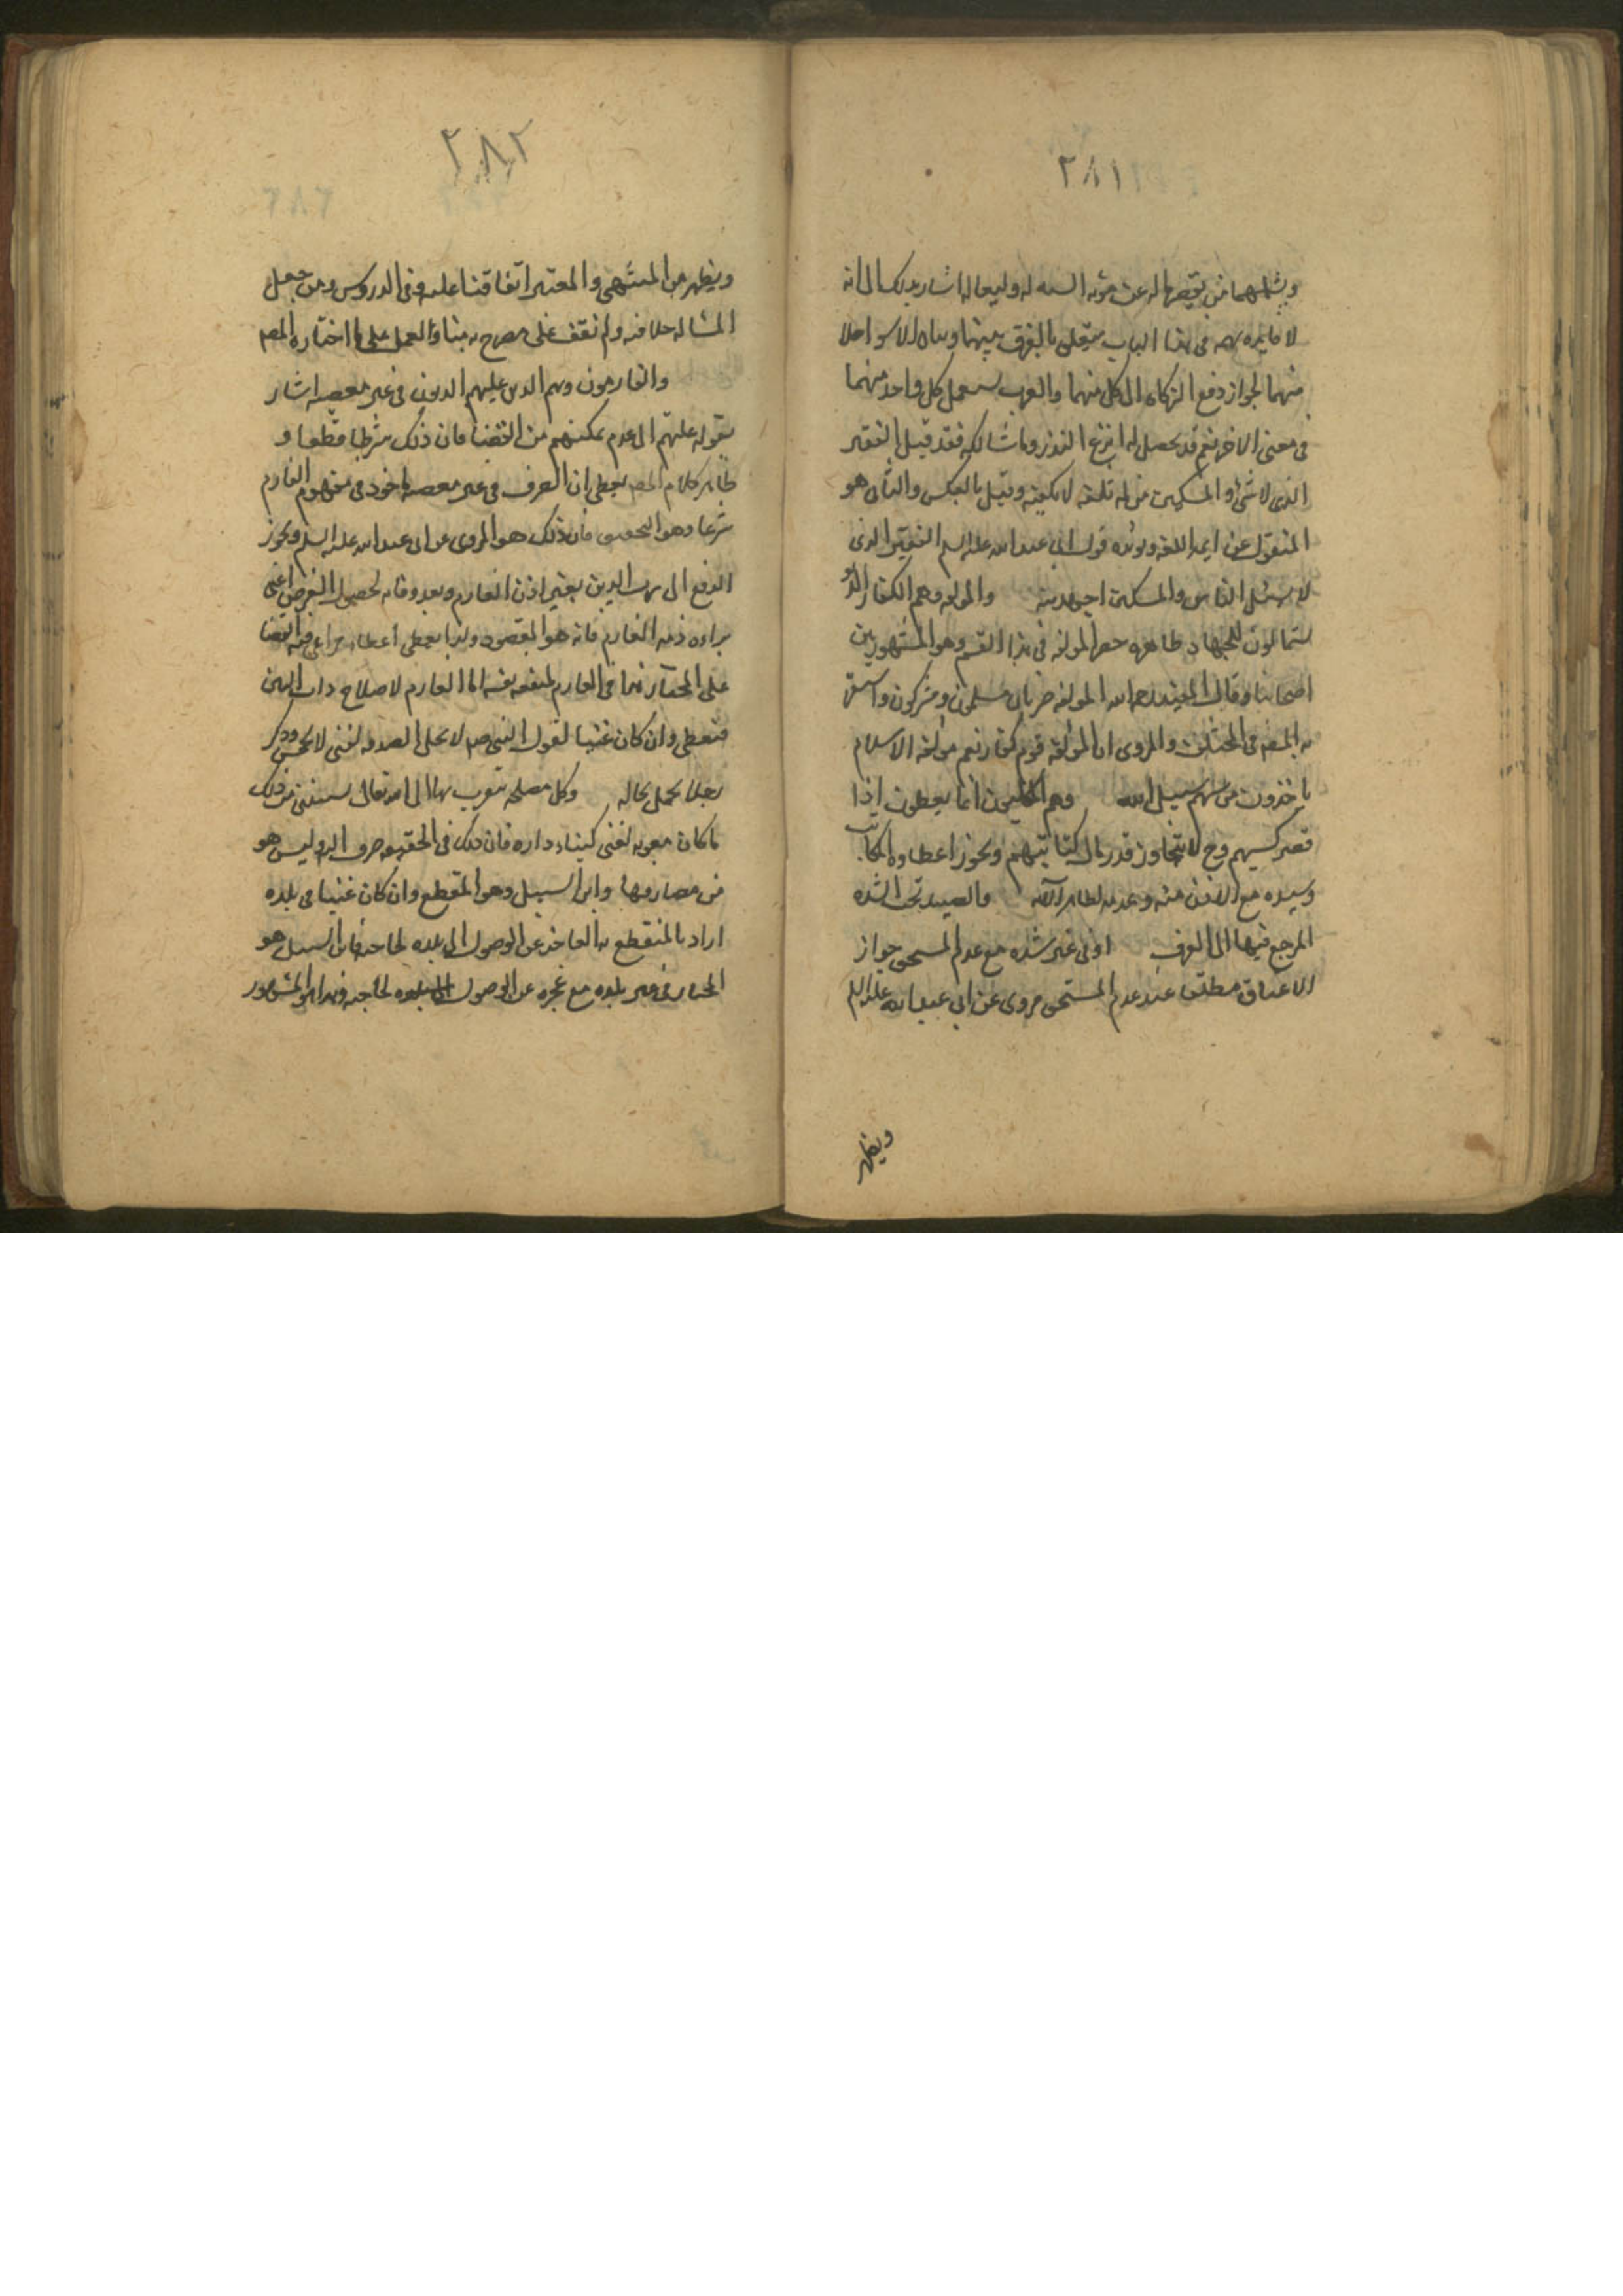 ٢٨١
ويشملهما من يقصر ماله عن مؤنة السنة له ولعياله اشار بذلك الى انه
لا فايده مهمه فى هذا الباب يتعلق بالفرق بينهما وبيان الاسوء حالا
منهما لجواز دفع الزكاه الى كل منهما والعرب يستعمل كل واحد منهما
فى معنى الاخر نعم قد يحصل له في النذر وما شاكله فقد قيل الفقير
الذى لا شئ له والمسكين من له بلغة لا تكفيه وقيل بالعكس والثانى هو
المنقول عن ايمه اللغه ويؤيده قول ابى عبد الله عليه السلم الفقير الذى
لا يسئل الناس والمسكين اجهد منه والمولفه وهم الكفار الذين
يستمالون للجهاد ظاهره حصر المولفه فى هذا القسم وهو المشهور بين
اصحابنا وقال المفيد رحمه الله المولفه ضربان مسلمون ومشركون
المص فى والمروى ان المولفه قوم كفار نعم مولفة الاسلام
ياخذون من سهم سبيل الله وهم المكاتبون انما يعطون اذا
قصر كسبهم وح لا يتجاوز قدر مال كتابتهم ويجوز اعطاوه المكاتب
وسيده مع الاذن منه وعدمه لظاهر الآيه والعبيد تحت الشده
المرجع فيها الى العرف او فى غير شده مع عدم المستحق جواز
الاعتاق مطلقا عند عدم المستحق مروى عن ابى عبد الله عليه السلم
ويظهر
٢٨٢
ويظهر من المنتهى والمعتبر اتفاقنا عليه وفى الدروس ومن جعل
المساله خلافيه ولم نقف على مصرح به منا والعمل على ما اختاره المص
والغارمون وهم الذين عليهم الديون فى غير معصيه اشار
بقوله عليهم الى عدم تمكنهم من القضا فان ذلك شرط قطعا و
ظاهر كلام المص يعطى ان الصرف فى غير معصيه ماخوذ فى مفهوم الغارم
شرعا وهو التحقيق فان ذلك هو المروى عن ابى عبد الله عليه السلم ويجوز
الدفع الى رب الدين بغير اذن الغارم وبعد وفاته لحصول الغرض اعنى
براءه ذمه الغارم فانه هو المقصود
على المختار هذا فى الغارم لمنفعه نفسه اما الغارم لاصلاح ذات البين
فيعطى وان كان غنيا لقول النبى ص لا تحل الصدقه لغنى الا لخمس وذكر
رجلا تحمل بحاله وكل مصلحه يتقرب بها الى الله تعالى يستثنى من ذلك
ما كان معونه لغنى كبناء داره فان ذلك فى الحقيقه صرف اليه وليس هو
من مصارفها وابن السبيل وهو المنقطع به وان كان غنيا فى بلده
اراد بالمنقطع به العاجز عن الوصول الى بلده لحاجته فابن السبيل هو
المجتاز فى غير بلده مع عجزه عن الوصول الى بلده لحاجته وهذا هو المشهور